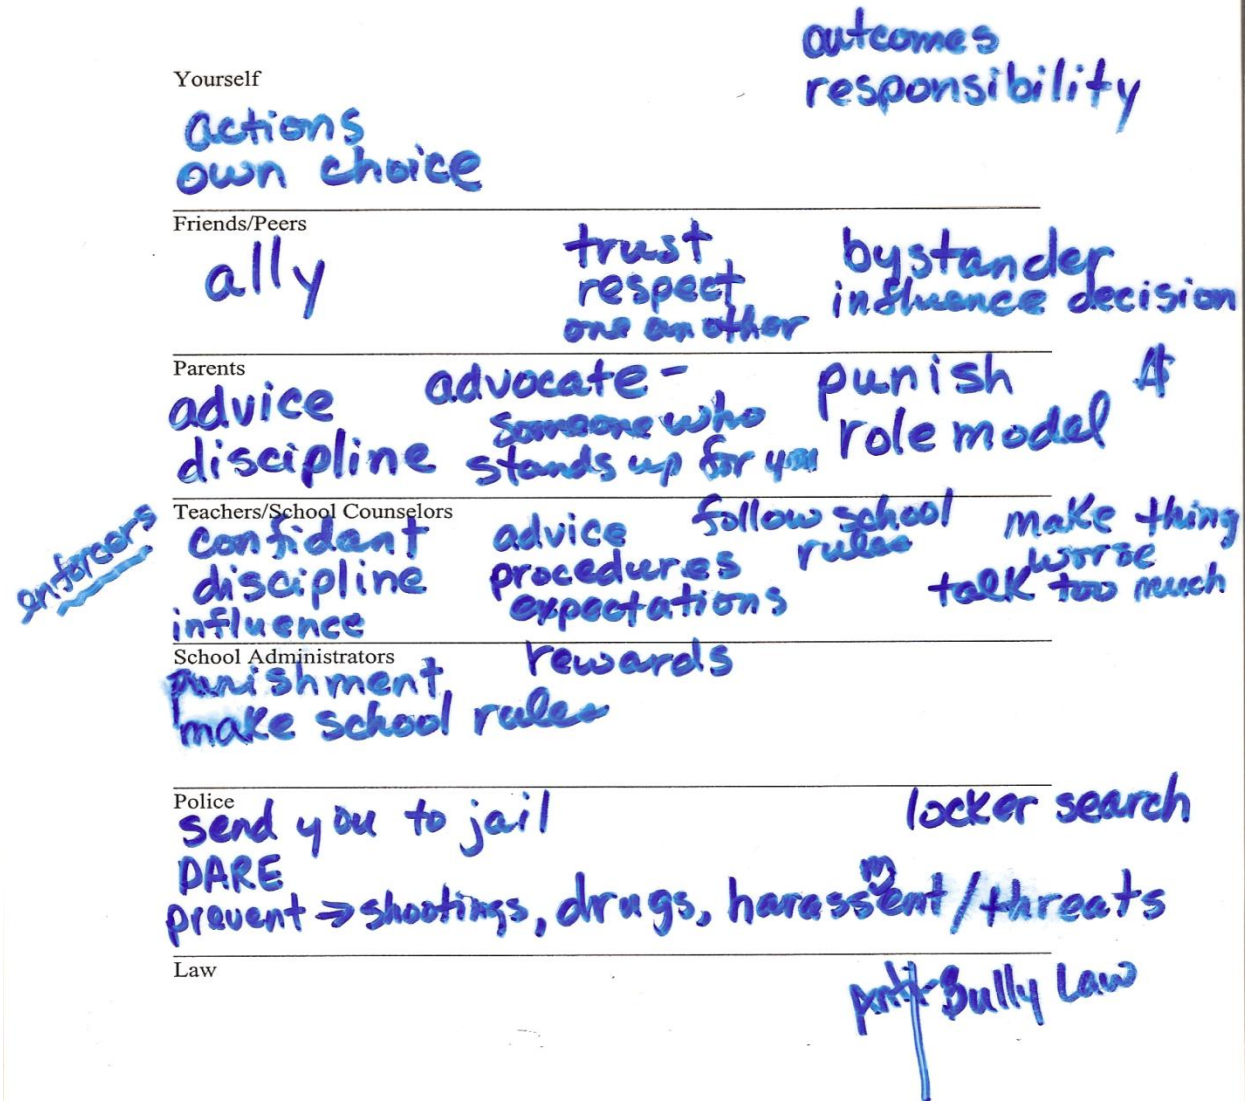 outcomes
responsibility
Yourself
actions
own choice
Friends/Peers
ally
trust
respect
one another
bystander
influence decision
Parents
advice
discipline
advocate-
someone who
stands up for you
punish
role model
enforcers
Teachers/School Counselors
confidant
discipline
influence
advice
procedures
expectations
follow school
rules
make thing
worse
talk too much
School Administrators
punishment
make school rules
rewards
Police
send you to jail
DARE
prevent → shootings, drugs, harassment/threats
locker search
Law
Bully Law